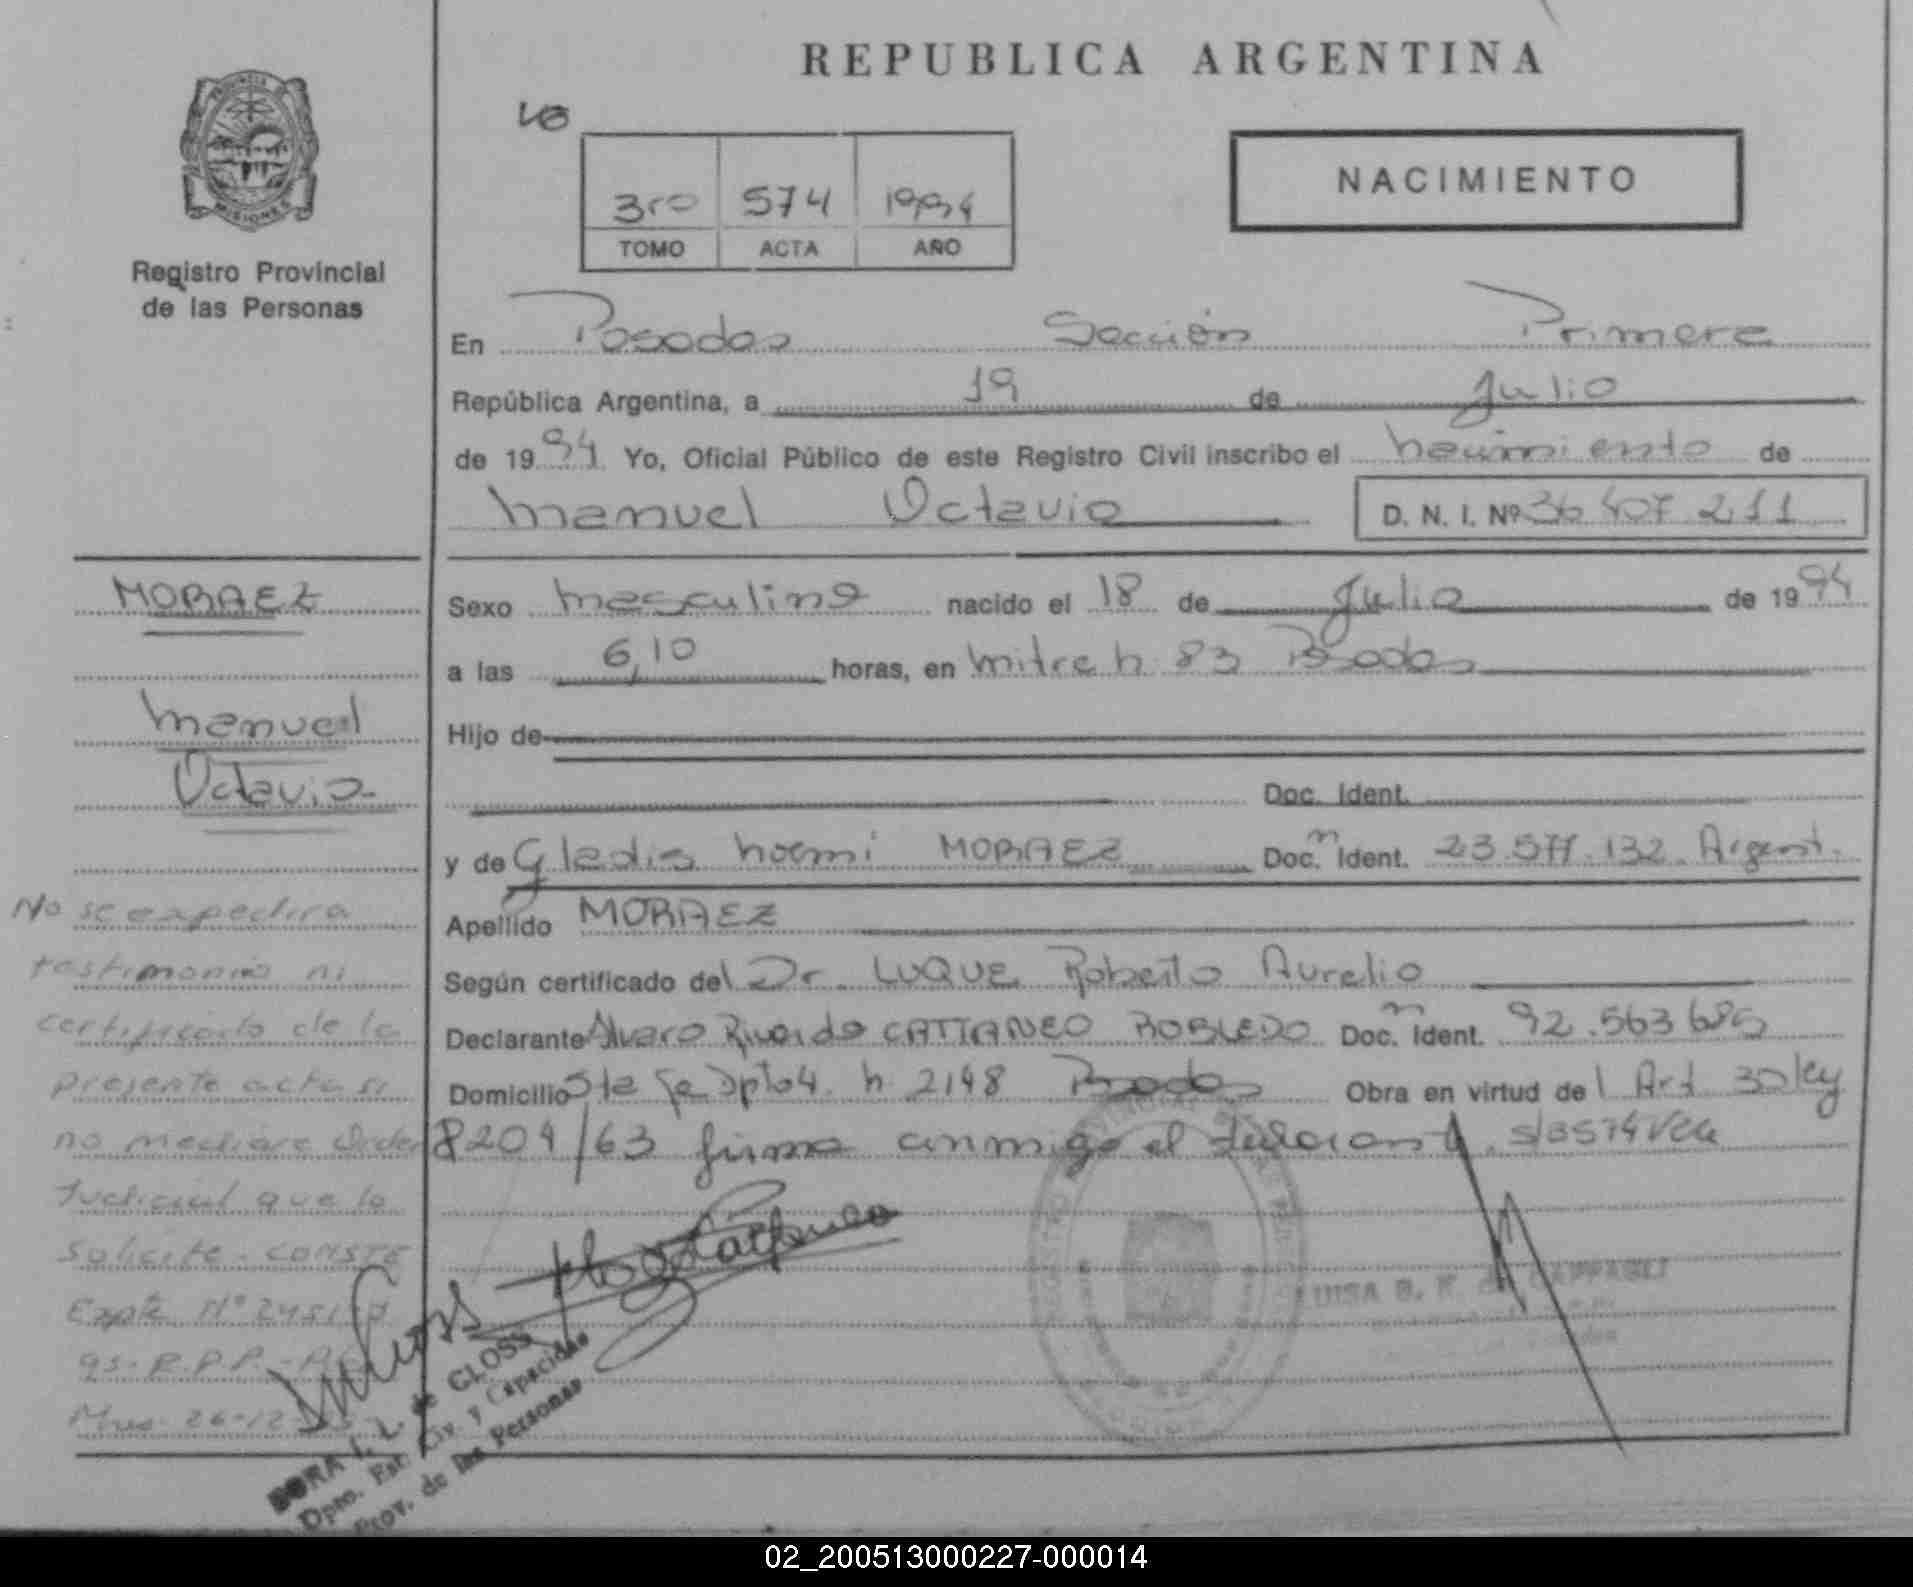 REPUBLICA ARGENTINA
PROVINCIA DE MISIONES
Registro Provincial
de las Personas
3ro 574 1994
TOMO ACTA AÑO
NACIMIENTO
En Posadas Sección Primera
República Argentina, a 19 de Julio
de 1994 Yo, Oficial Público de este Registro Civil inscribo el nacimiento de
Manuel Octavio D. N. I. Nº 36 407 211
MORAEZ
Manuel
Octavio
Sexo masculino nacido el 18 de Julio de 1994
a las 6,10 horas, en mitre n 83 Posadas
Hijo de
Doc. Ident.
y de Gladis noemi MORAEZ Doc. Ident. 23.577.132 Argent.
Apellido MORAEZ
Según certificado del Dr. LUQUE Roberto Aurelio
Declarante Alvaro Ricardo CATTANEO ROBLEDO Doc. Ident. 92.563 685
Domicilio Sta Fe Dpto 4 n 2148 Posadas Obra en virtud del Art 30 ley
8204/63 firma conmigo el declarante
No se expedira
testimonio ni
certificado de la
presente acta si
no mediare Orden
Judicial que lo
solicite - CONSTE
Expte Nº 2451
95- R.P.P.
Mnes. 26-12-
DORA I. L. de GLOSS
Dpto. Est. Civ. y Capacidad
Prov. de las Personas
LUISA B. K. de
02_200513000227-000014